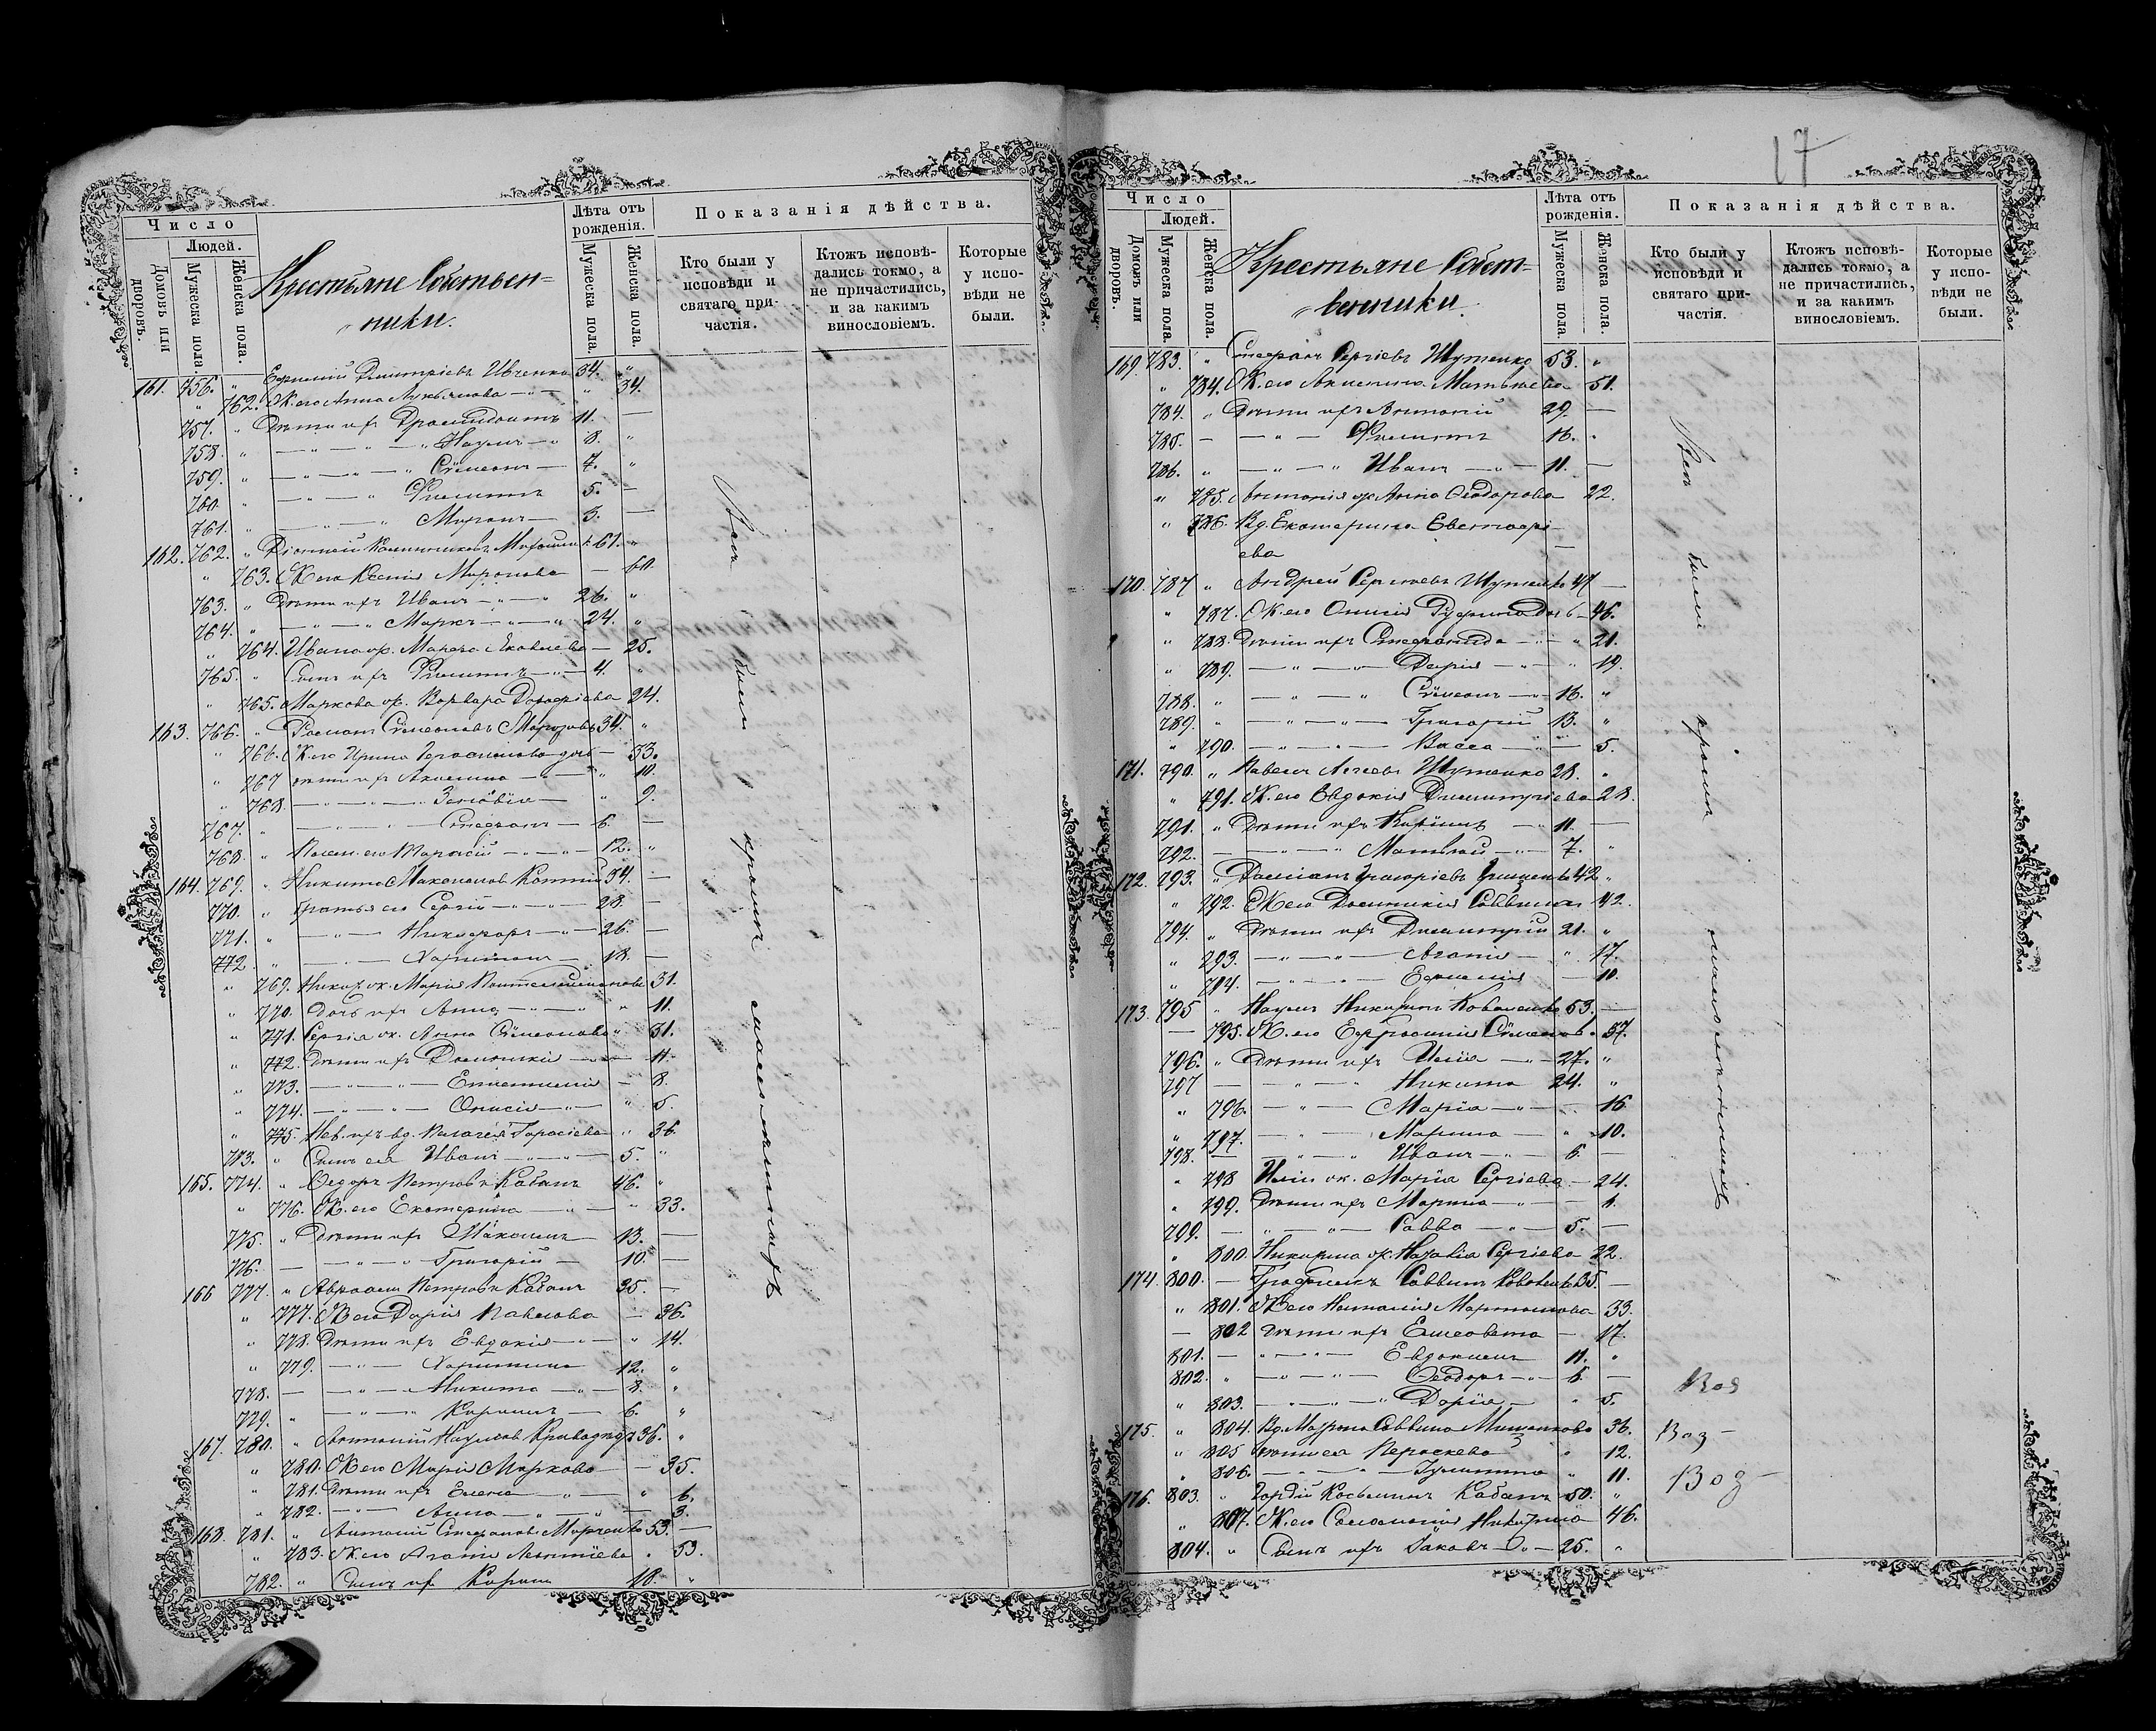 17
Число
Людей.
Домовъ или дворовъ.
Мужеска пола.
Женска пола.
Крестьяне Собствен=
ники.
Лѣта отъ рожденія.
Мужеска пола.
Женска пола.
Показанія дѣйства.
Кто были у исповѣди и святаго причастія.
Ктожъ исповѣ-
дались токмо, а
не причастились,
и за какимъ
винословіемъ.
Которые
у испо-
вѣди не
были.
161. 756. " Ефимій Димитріевъ Ивченко 34. "
" 762. Ж. его Анна Лукьянова " 34.
757. " Дѣти ихъ 11. —
758. " — " — " Наумъ — " 8. "
759. " — " — " Сѵмеонъ — 7. "
760. " — " — " Филиппъ 5. —
761. " — " — " Миронъ — 3. —
162. 762. " 61. "
" 763. Ж. его Ксенія Миронова — 60.
763. " Дѣти ихъ Иванъ — " — 26. "
764. " — " — " Маркъ — " — 24. "
" 764. Ивана ж. Марѳа Яковлева — 25.
765. " Сынъ ихъ Филиппъ — " — 4. "
" 765. Маркова ж. Варвара 24.
163. 766. " Сѵмеоновъ 34. "
" 766. Ж. его Ирина Герасимова дочь — 33.
" 767 Дѣти ихъ Акилина — " — " 10.
" 768 — " — " — Зеновія — " 9.
767. " — " — " — Стефанъ — 6. —
768. " Плем. его Тарасій — " — " 12. "
164. 769. " Никита 34. —
770. " Братья его Сергій — " — 28 —
771. " — " — Никифоръ — " — 26. —
772. " — " — Харитонъ — 18. —
" 769. ж. Марія 31.
" 770. Дочь ихъ Анна — " — " 11.
" 771. Сергія ж. Анна Сѵмеонова " 31.
" 772. Дѣти ихъ Домникія — 11.
" 773. — " — " — — 8.
" 774. — " — " — Онисія — " — " 5.
" 775. Нев. ихъ вд. Пелагея " 36.
773. " Сынъ ея Иванъ — " — 5. "
165. 774. " Ѳедоръ Петровъ Кабанъ 46. "
" 776. Ж. его Екатерина — " — " 33.
775. " Дѣти ихъ 13. —
776. — — " — " Григорій — 10. —
166 777. " Авраамъ Петровъ Кабанъ 35. —
" 777. Ж. его Дарія Павлова — 36.
" 778. Дѣти ихъ Евдокія — " — " 14.
" 779. — " — Харитина 12. "
778. — — " — Никита — " — 8. "
779. " — " — " Кириллъ — 6. "
167. 780. " Антоній Наумовъ 36. "
" 780. Ж. его Марія Маркова — 35.
" 781. Дѣти ихъ Елена — " — " 6.
" 782. — " — Анна — " — 3.
168. 781. " Антоній Стефановъ Марченко 53. —
" 783. Ж. его Агафія Леонтіева " 53.
782. " Сынъ их 18. "
Всѣ были кромѣ малолѣтнихъ
Число
Людей.
Домовъ или дворовъ.
Мужеска пола.
Женска пола.
Крестьяне Собст=
венники.
Лѣта отъ рожденія.
Мужеска пола.
Женска пола.
Показанія дѣйства.
Кто были у исповѣди и святаго причастія.
Ктожъ исповѣ-
дались токмо, а
не причастились,
и за какимъ
винословіемъ.
Которые
у испо-
вѣди не
были.
169. 783. " Стефанъ Сергіевъ Шутенко 53. "
" 784. Ж. его Акилина Матвѣева 51.
784. " Дѣти ихъ Антоній 29. —
785. — — " — Филиппъ 16. "
786. " — " — " Иванъ — " — 11. —
" 785. Антонія ж. Анна Ѳеодорова 22.
" 786. Вд. Екатерина Евстафі-
ева —
170. 787 " Андрей Сергіевъ Шутенко 47 —
" 787. Ж. его Онисія 46.
" 788. Дѣти ихъ Стефанида — " — " 21.
" 789. — " — " — Дарія — " — " 19.
788. " — " — " Сѵмеонъ — " — 16. "
789. " — " — " — Григорій 13. "
" 790. — " — " — Васса — " — 5.
171. 790. " Павелъ Шутенко 28. "
" 791. Ж. его Евдокія Димитріева 28.
791. " Дѣти ихъ 11. —
792. — — " — " Матвѣй — " — 7. "
172. 793. " Григоріевъ Гриценко 42 "
" 792. Ж. его Домникія Саввина 42.
794. " Дѣти ихъ Димитрій 21. "
" 793. — " — " — Агафія — " 17.
" 794. — " — " — Ефимія — 10.
173. 795 " Наумъ Коваленко 53. —
— 795. Ж. его Ефросинія Сѵмеонов. 57.
796. " Дѣти ихъ Илія — " — 27. "
797 — — " — " Никита 24. "
" 796. — " — Марія — " — 16
" 797. — " — Марина — " 10.
798. — — " — " Иванъ — " — 6. —
" 798 Иліи ж. Марія Сергіева — 24.
" 799. Дѣти ихъ Марина — " — 1.
799. — — " — " — Савва — " — 5. —
" 800. Никиты ж. Наталія Сергіева 22.
174. 800. — Саввинъ Коваленко 35. —
" 801. Ж. его Наталія Мартинова 33.
— 802 Дѣти ихъ Елисавета — 17.
801. — — " — " — Евдокимъ 11. "
802. " — " — " — Ѳеодоръ — " — 6 —
" 803. — " — " — " Дарія — " 5.
175. " 804. Вд. Саввина 36.
" 805 Дѣти ея Параскева " 12.
" 806. — " — " — Іулитта " 11.
176. 803. " Гордій Косьминъ Кабанъ 50. "
" 807. Ж. его Соломонія 46.
804. " Сынъ ихъ Іаковъ — " — 25. "
Всѣ были кромѣ малолѣтнихъ
Воз
Воз —
Воз —